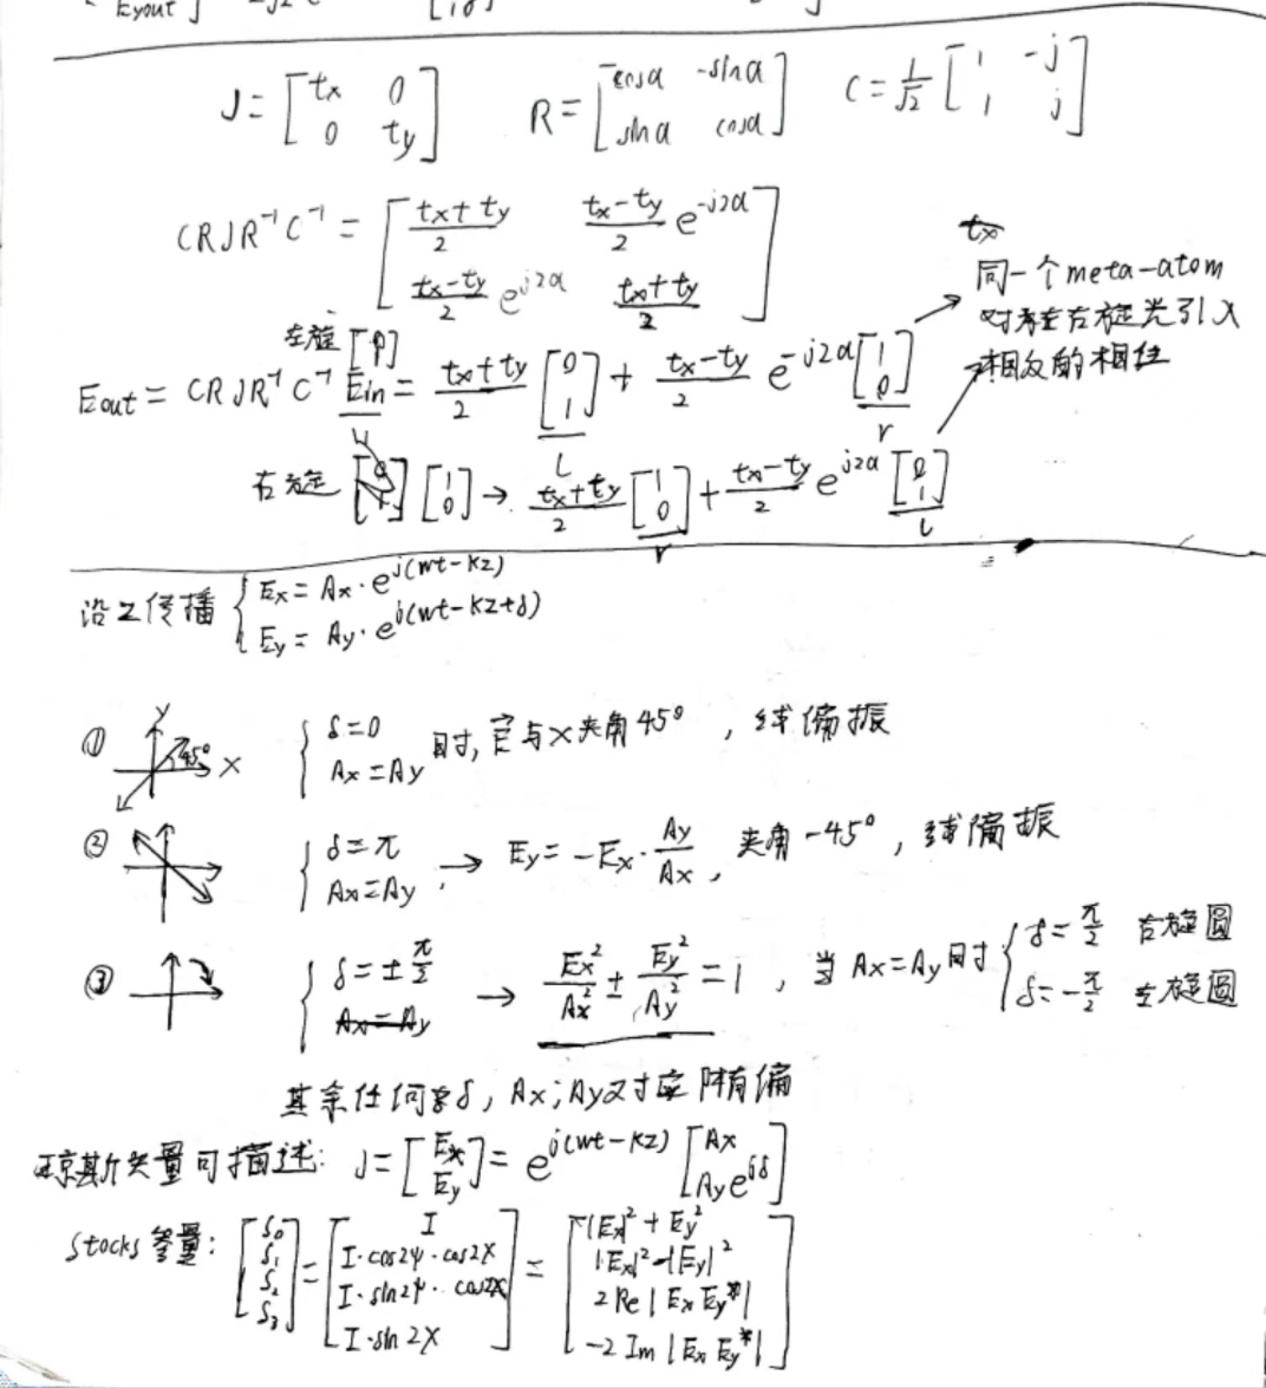 Eyout ]
J = [ tx 0 ; 0 ty ] R = [ cosα -sinα ; sinα cosα ] C = 1/√2 [ 1 -j ; 1 j ]
CRJR⁻¹C⁻¹ = [ (tx+ty)/2 (tx-ty)/2 e^{-j2α} ; (tx-ty)/2 e^{j2α} (tx+ty)/2 ]
tx
同一个meta-atom
对左右旋光引入
相反的相位
左旋 [0 1]
Eout = CRJR⁻¹C⁻¹ Ein = (tx+ty)/2 [ 0 ; 1 ] + (tx-ty)/2 e^{-j2α} [ 1 ; 0 ]
l r
右旋 [ 1 ; 0 ] → (tx+ty)/2 [ 1 ; 0 ] + (tx-ty)/2 e^{j2α} [ 0 ; 1 ]
r l
沿Z传播 { Ex = Ax·e^{j(wt-kz)}
Ey = Ay·e^{j(wt-kz+δ)}
① y 45° x { δ=0 Ax=Ay 时, E与x夹角45°, 线偏振
② { δ=π Ax=Ay → Ey = -Ex·Ay/Ax, 夹角-45°, 线偏振
③ { δ=±π/2 Ax=Ay → Ex²/Ax² ± Ey²/Ay² = 1, 当Ax=Ay时 { δ=π/2 右旋圆
δ=-π/2 左旋圆
其余任何δ, Ax; Ay对应椭偏
琼斯矢量可描述: J = [ Ex ; Ey ] = e^{j(wt-kz)} [ Ax ; Aye^{jδ} ]
Stocks参量: [ S0 ; S1 ; S2 ; S3 ] = [ I ; I·cos2ψ·cos2χ ; I·sin2ψ·cos2χ ; I·sin2χ ] = [ |Ex|²+Ey² ; |Ex|²-|Ey|² ; 2Re|ExEy*| ; -2Im|ExEy*| ]